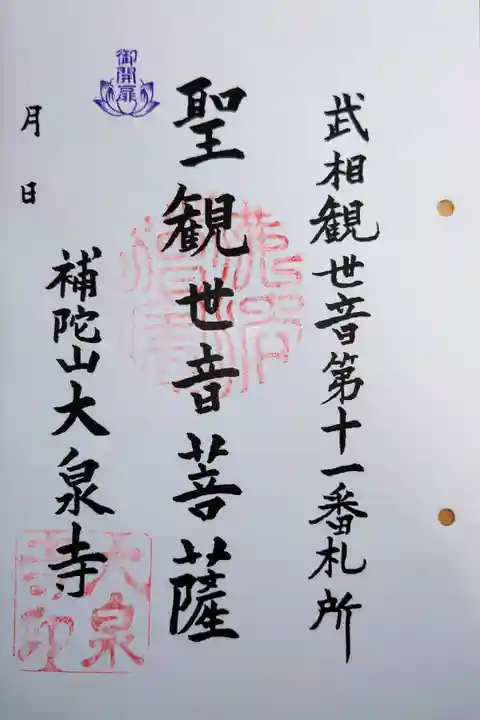 武相観世音第十一番札所
御開扉
聖観世音菩薩
月 日
補陀山大泉寺
大泉寺印